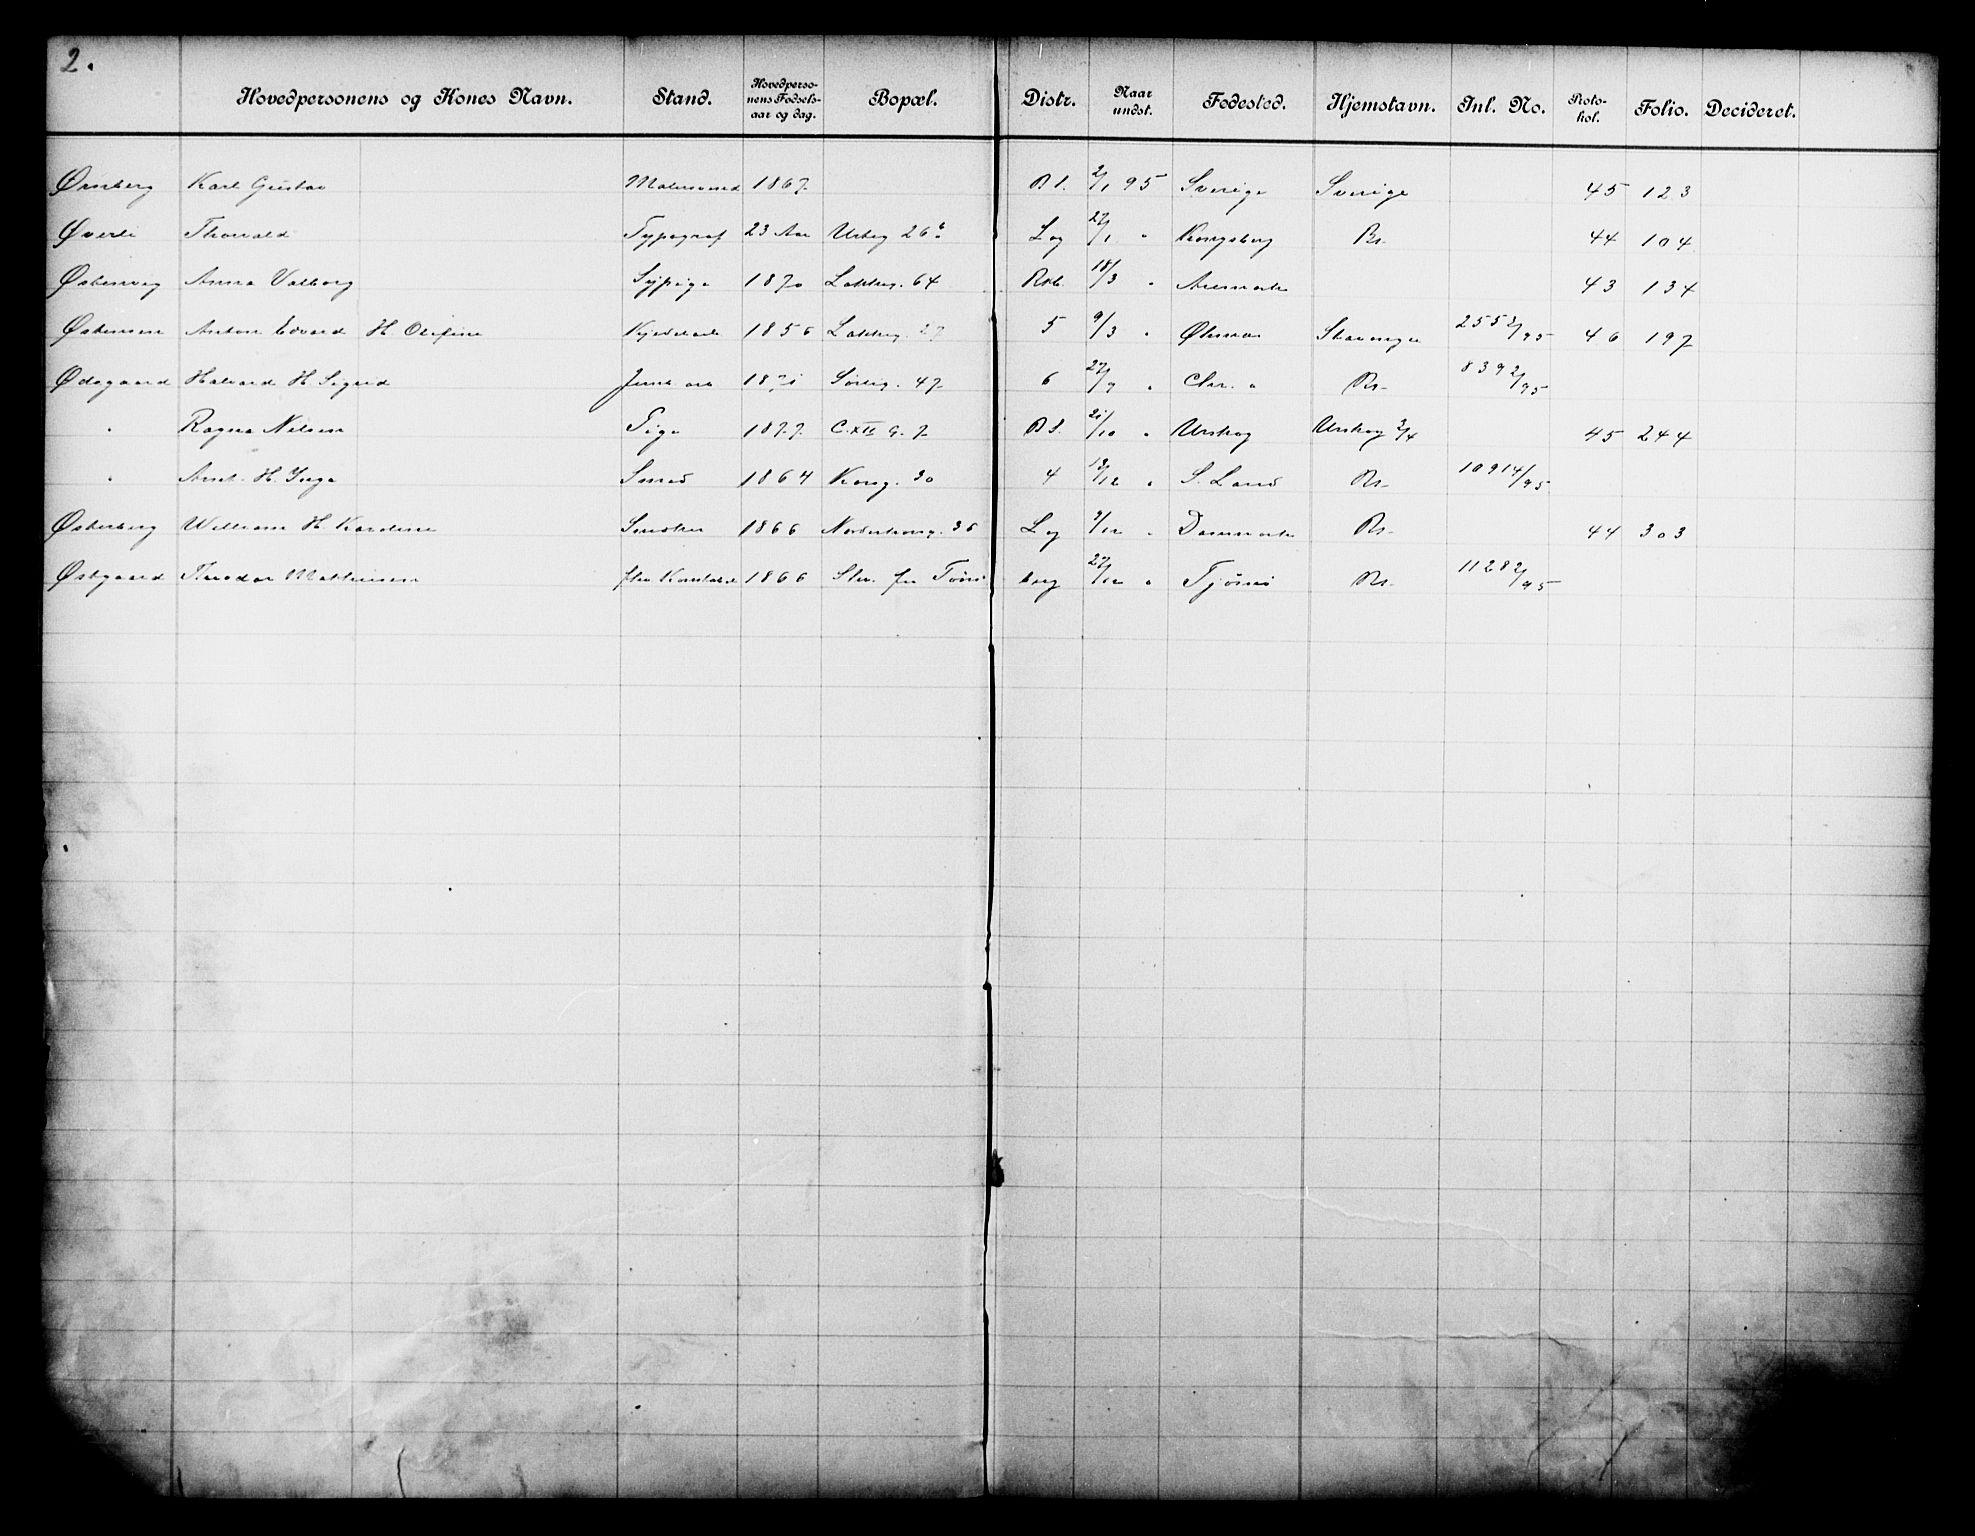 2.
Hovedpersonens og Kones Navn. Stand. Hovedpersonens Fødselsaar og dag. Bopæl. Distr. Naar undst. Fødested. Hjemstavn. Inl. No. Protokol. Folio. Decideret.
Ørnberg Karl Gustav Malersvend 1867. 2/1 95 Sverige Sverige 45 123
Øverli Thorvald Typograf 23 Aar Urteg 26 b Log 27/1 " Kongsberg Bs. 44 104
Østenvig Anna Valborg Sypige 1870 Lakkeg. 64 18/3 " Aremark 43 134
Østensen Anton Edvard H. Olefine 1856 Lakkeg. 27 5 9/3 " Stavanger 255 2/95 46 197
Ødegaard Halvard H Sigrid 1871 Sørlig. 47 6 27/9 " Chr. a Bs. 839 2/95
" Ragna Nilsen Pige 1877. C. XII G. 7 B S. 21/10 " Urskog Urskog 3/4 45 244
" Arnt. H. Inga Smed 1864 Kong. 30 4 12/12 " S. Land Bs. 1091 4/95
Østerberg William H. Karoline Snedker 1866 Norderhovg. 36 Log 9/12 " Danmark Bs. 44 303
Østgaard Theodor Mathiesen fhv Konstabel 1866 Str. fr Tønsberg 27/12 " Tjømø Bs. 1128 2/95